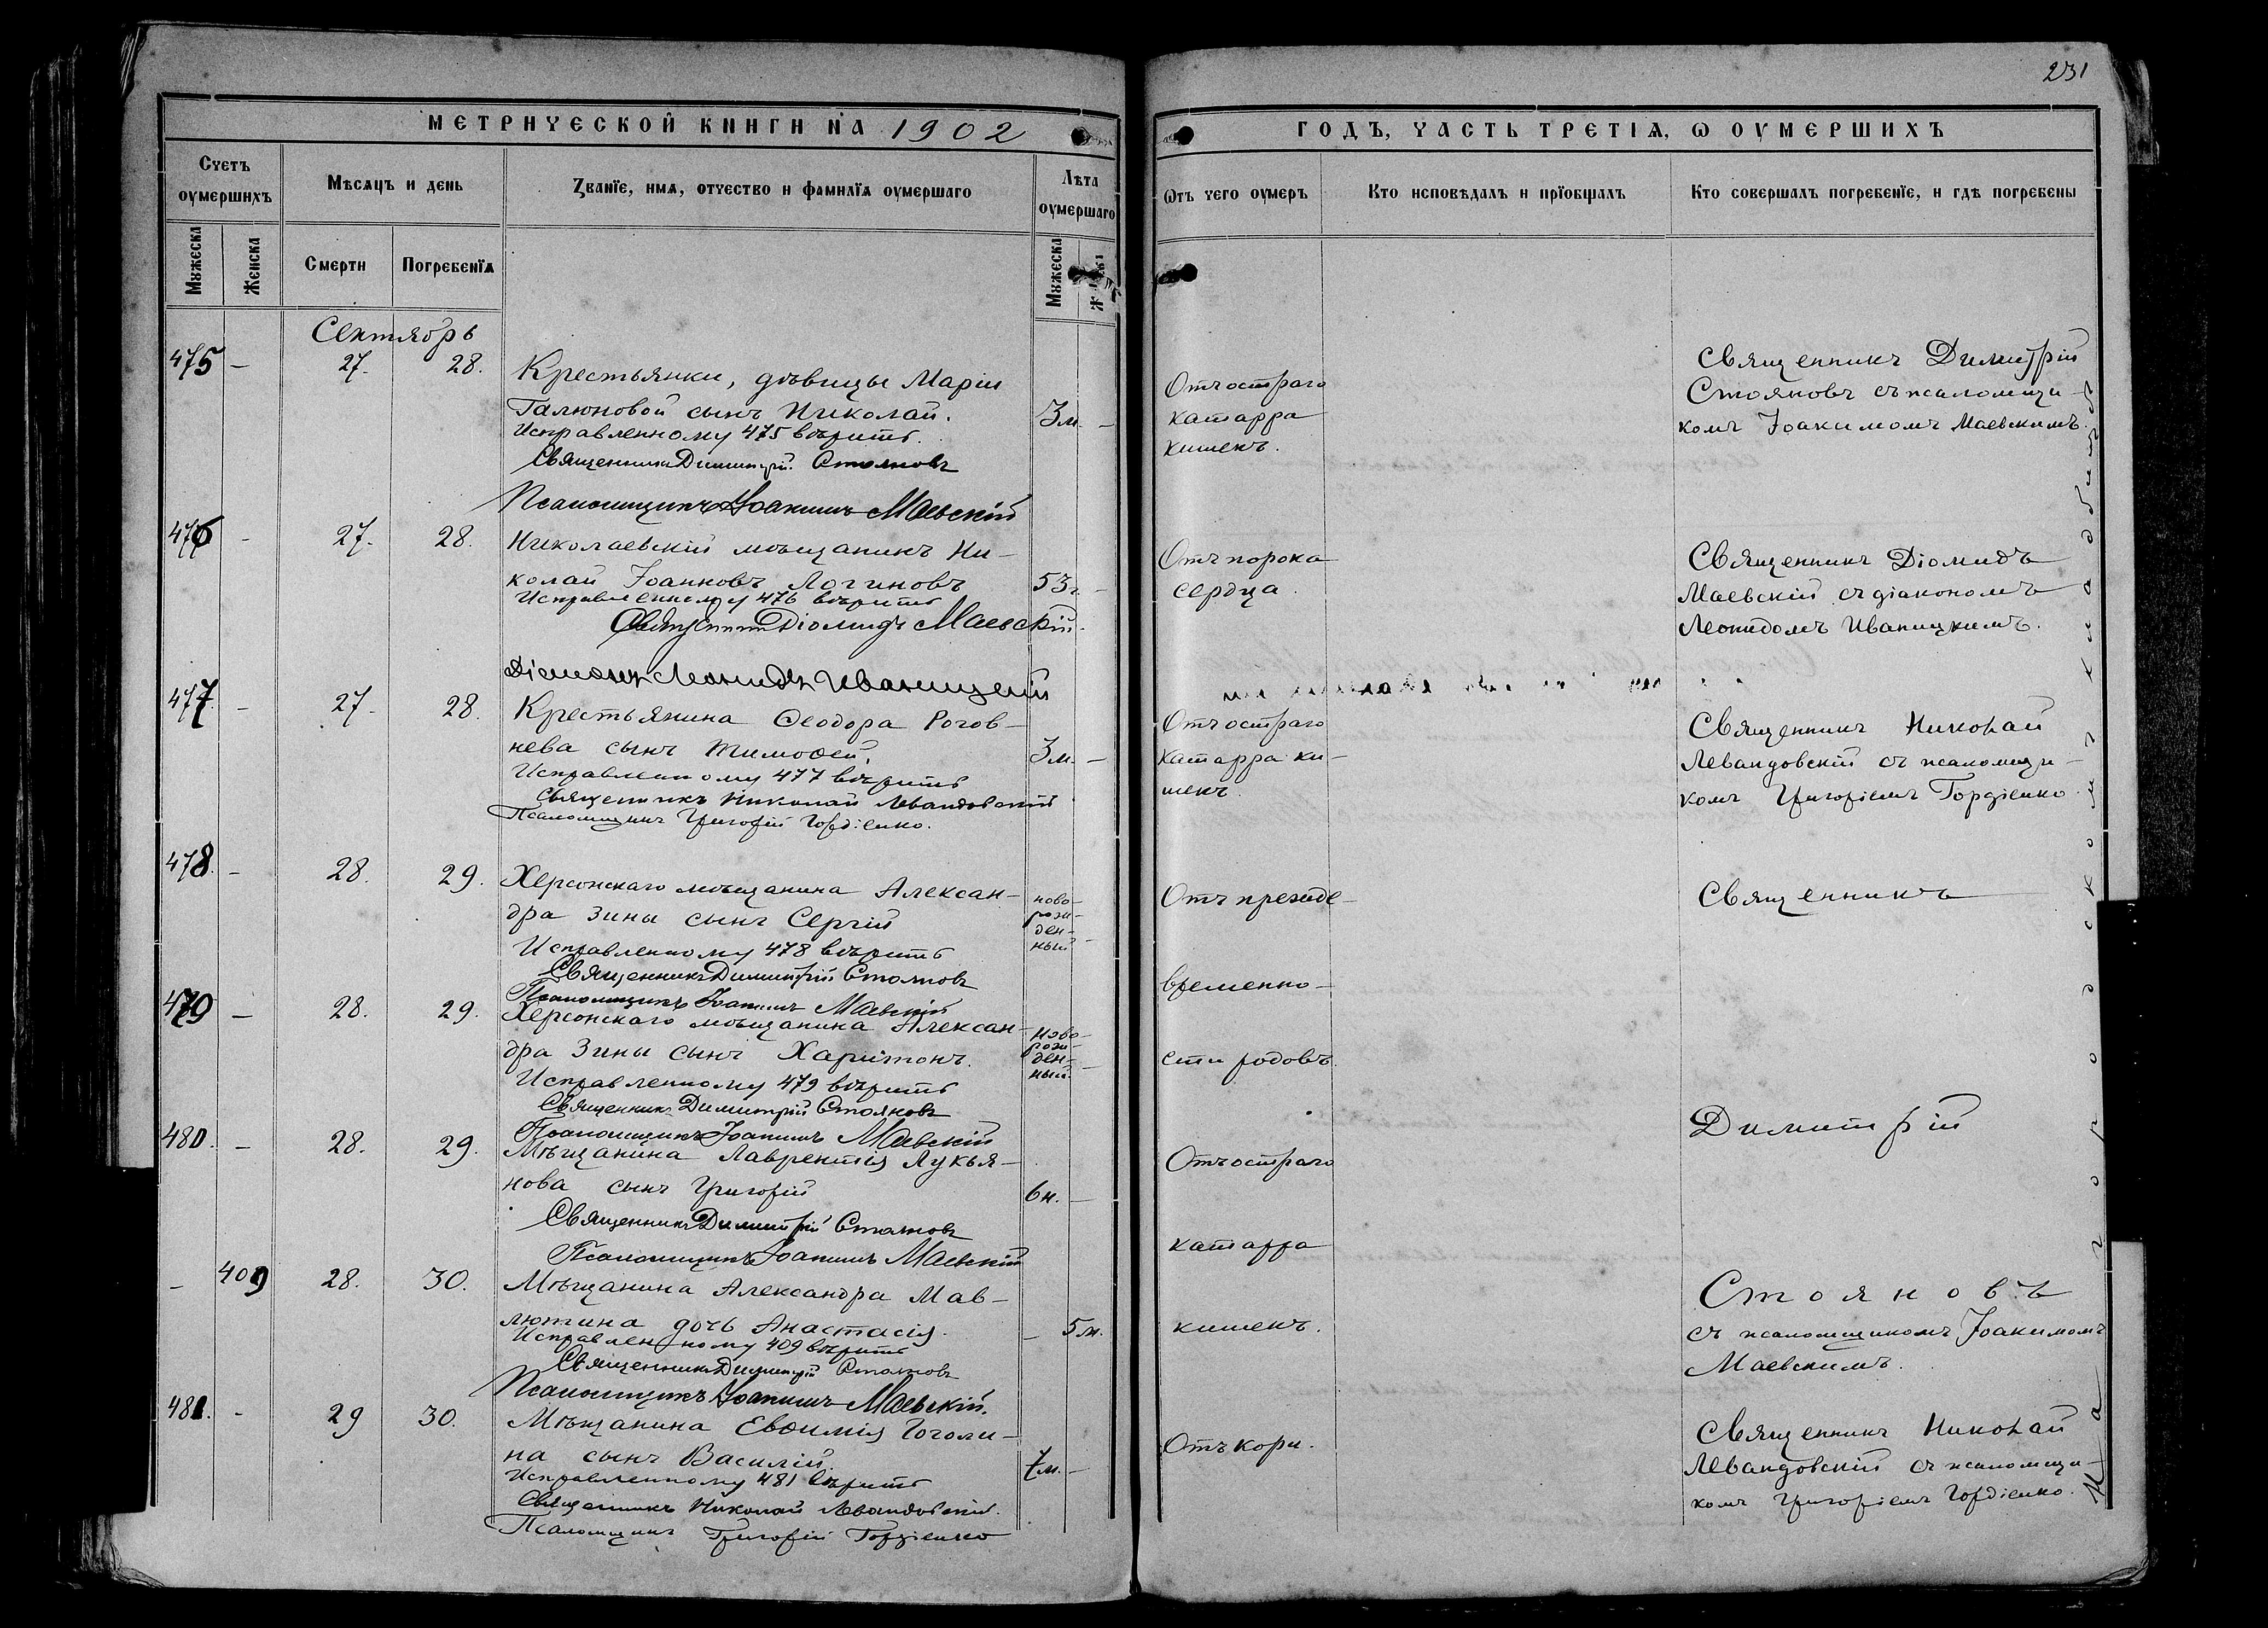 231
МЕТРИЧЕСКОЙ КНИГИ НА 1902
ГОДЪ, ЧАСТЬ ТРЕТІѦ, Ѡ ОУМЕРШИХЪ
Счетъ оумершихъ
Мѣсяцъ и день
Званїе, имѧ, отчество и фамилїѧ оумершаго
Лѣта оумершаго
Ѿтъ чего оумеръ
Кто исповѣдалъ и прїобщалъ
Кто совершалъ погребенїе, и гдѣ погребены
Мꙋжеска
Женска
Смерти
Погребенїѧ
Мꙋжеска
Сентябрь
475 — 27. 28.
Крестьянки, дѣвицы Маріи
Галюновой сынъ Николай.
Исправленному 475 вѣрить.
Священникъ Димитрій Стояновъ
Псаломщикъ Іоакимъ Маевскій
3 м. —
Отъ остраго
катарра
кишекъ.
Священникъ Димитрій
Стояновъ съ псаломщи-
комъ Іоакимомъ Маевскимъ.
476 - 27. 28.
Николаевскій мѣщанинъ Ни-
колай Іоанновъ Логиновъ
Исправленному 476 вѣрить
Священникъ Діомидъ Маевскій.
Діаконъ Леонидъ Иваницкій
53 г. -
Отъ порока
сердца.
Священникъ Діомидъ
Маевскій съ діакономъ
Леонидомъ Иваницкимъ.
477 - 27. 28.
Крестьянина Ѳеодора Рогов-
нева сынъ Тимоѳей.
Исправленному 477 вѣрить
Священникъ Николай Левандовскій
Псаломщикъ Григорій Гордіенко.
3 м. —
Отъ остраго
катарра ки-
шекъ.
Священникъ Николай
Левандовскій съ псаломщи-
комъ Григоріемъ Гордіенко.
478. - 28. 29.
Херсонскаго мѣщанина Алексан-
дра Зины сынъ Сергій
Исправленному 478 вѣрить
Священникъ Димитрій Стояновъ
Псаломщикъ Іоакимъ Маевскій
ново-
рож-
ден-
ный -
Отъ прежде-
Священникъ
479 — 28. 29.
Херсонскаго мѣщанина Алексан-
дра Зины сынъ Харитонъ.
Исправленному 479 вѣрить
Священникъ Димитрій Стояновъ
Псаломщикъ Іоакимъ Маевскій
Ново-
рож-
ден-
ный. -
временно-
сти родовъ.
Димитрій
480. - 28. 29.
Мѣщанина Лаврентія Лукья-
нова сынъ Григорій
Священникъ Димитрій Стояновъ
Псаломщикъ Іоакимъ Маевскій
6 н. —
Отъ остраго
катарра
кишекъ.
- 409 28. 30.
Мѣщанина Александра Мав-
лютина дочь Анастасія.
Исправленному 409 вѣрить
Священникъ Димитрій Стояновъ
Псаломщикъ Іоакимъ Маевскій.
- 5 м.
Стояновъ
съ псаломщикомъ Іоакимомъ
Маевскимъ.
481. - 29 30.
Мѣщанина Евѳимія Гоголи-
на сынъ Василій.
Исправленному 481 вѣрить
Священникъ Николай Левандовскій.
Псаломщикъ Григорій Гордіенко
7 м. —
Отъ кори.
Священникъ Николай
Левандовскій съ псаломщи-
комъ Григоріемъ Гордіенко.
На городскомъ кладбищѣ